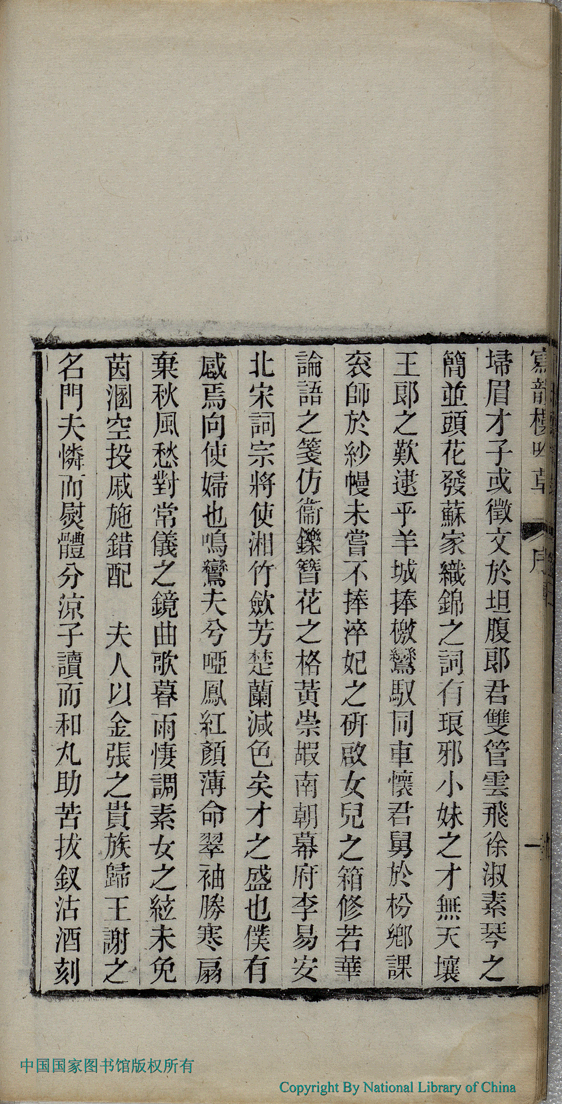 寫韻樓吟草 序 一
埽眉才子或徵文於坦腹郞君雙管雲飛徐淑素琴之
簡並頭花發蘇家織錦之詞有琅邪小妹之才無天壤
王郞之歎逮乎羊城捧檄鸞馭同車懷君舅於枌鄉課
衮師於紗幔未嘗不捧淬妃之硏啟女兒之箱修若華
論語之箋仿衞鑠簪花之格黃崇嘏南朝幕府李易安
北宋詞宗將使湘竹歛芳楚蘭減色矣才之盛也僕有
感焉向使婦也鳴鸞夫兮啞鳳紅顏薄命翠袖勝寒扇
棄秋風愁對常儀之鏡曲歌暮雨悽調素女之絃未免
茵溷空投戚施錯配 夫人以金張之貴族歸王謝之
名門夫憐而熨體分涼子讀而和丸助苦拔釵沽酒刻
中国国家图书馆版权所有
Copyright By National Library of China